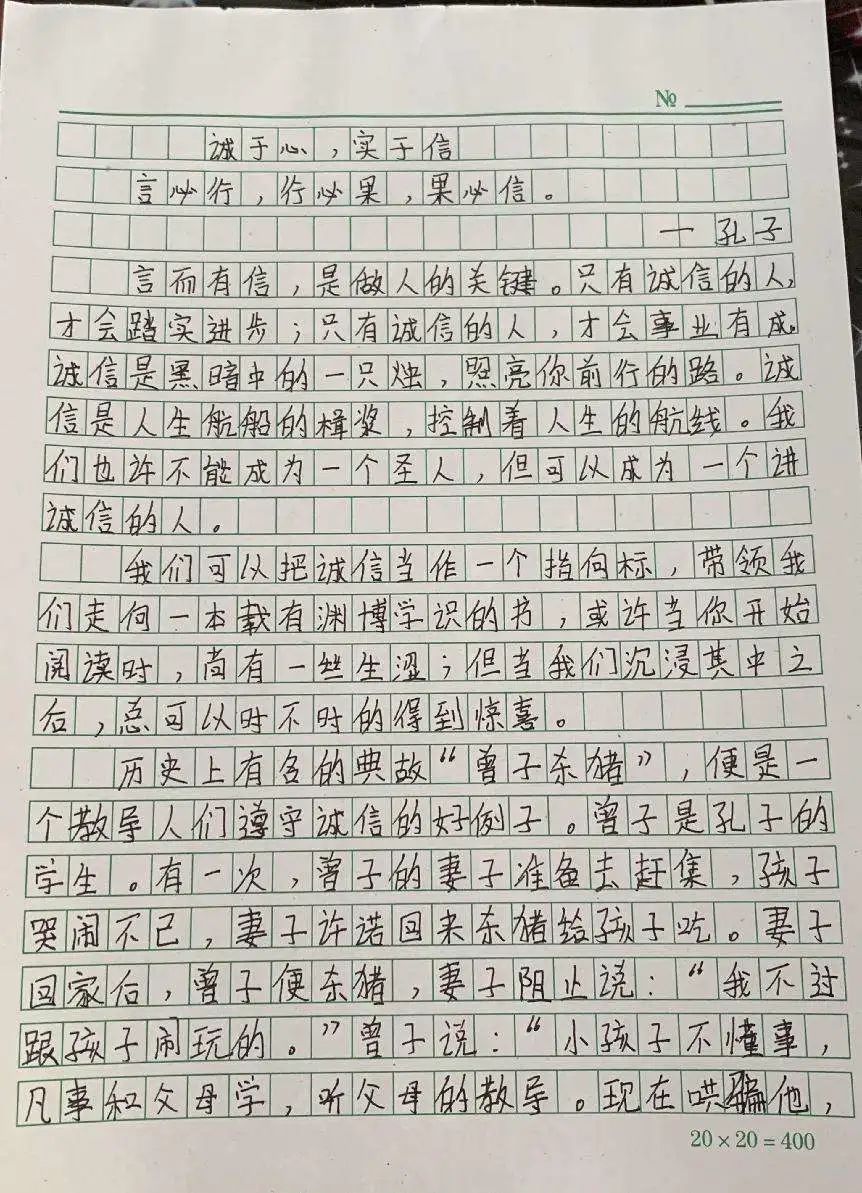 №
诚于心，实于信
言必行，行必果，果必信。
一孔子
言而有信，是做人的关键。只有诚信的人，
才会踏实进步；只有诚信的人，才会事业有成。
诚信是黑暗中的一只烛，照亮你前行的路。诚
信是人生航船的楫桨，控制着人生的航线。我
们也许不能成为一个圣人，但可以成为一个讲
诚信的人。
我们可以把诚信当作一个指向标，带领我
们走向一本载有渊博学识的书，或许当你开始
阅读时，尚有一丝生涩；但当我们沉浸其中之
后，总可以时不时的得到惊喜。
历史上有名的典故“曾子杀猪”，便是一
个教导人们遵守诚信的好例子。曾子是孔子的
学生。有一次，曾子的妻子准备去赶集，孩子
哭闹不已，妻子许诺回来杀猪给孩子吃。妻子
回家后，曾子便杀猪，妻子阻止说：“我不过
跟孩子闹玩的。”曾子说：“小孩子不懂事，
凡事和父母学，听父母的教导。现在哄骗他，
20×20=400